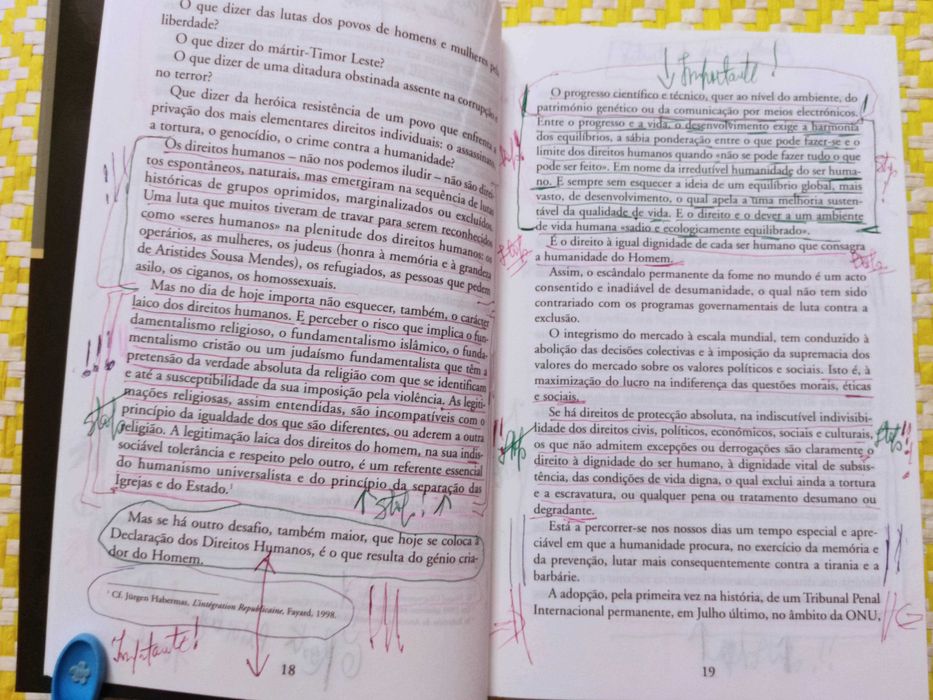 O que dizer das lutas dos povos de homens e mulheres pela
liberdade?
O que dizer do mártir-Timor Leste?
O que dizer de uma ditadura obstinada assente na corrupção e
no terror?
Que dizer da heróica resistência de um povo que enfrenta a
privação dos mais elementares direitos individuais: o assassinato,
a tortura, o genocídio, o crime contra a humanidade?
Os direitos humanos – não nos podemos iludir – não são direi-
tos espontâneos, naturais, mas emergiram na sequência de lutas
históricas de grupos oprimidos, marginalizados ou excluídos.
Uma luta que muitos tiveram de travar para serem reconhecidos
como «seres humanos» na plenitude dos direitos humanos: os
operários, as mulheres, os judeus (honra à memória e à grandeza
de Aristides Sousa Mendes), os refugiados, as pessoas que pedem
asilo, os ciganos, os homossexuais.
Mas no dia de hoje importa não esquecer, também, o carácter
laico dos direitos humanos. E perceber o risco que implica o fun-
damentalismo religioso, o fundamentalismo islâmico, o funda-
mentalismo cristão ou um judaísmo fundamentalista que têm a
pretensão da verdade absoluta da religião com que se identificam
e até a susceptibilidade da sua imposição pela violência. As legiti-
mações religiosas, assim entendidas, são incompatíveis com o
princípio da igualdade dos que são diferentes, ou aderem a outra
religião. A legitimação laica dos direitos do homem, na sua indis-
sociável tolerância e respeito pelo outro, é um referente essencial
do humanismo universalista e do princípio da separação das
Igrejas e do Estado.¹
Stop!
Mas se há outro desafio, também maior, que hoje se coloca à
Declaração dos Direitos Humanos, é o que resulta do génio cria-
dor do Homem.
¹ Cf. Jürgen Habermas, L'intégration Republicaine, Fayard, 1998.
Importante!
18
Importante!
O progresso científico e técnico, quer ao nível do ambiente, do
património genético ou da comunicação por meios electrónicos.
Entre o progresso e a vida, o desenvolvimento exige a harmonia
dos equilíbrios, a sábia ponderação entre o que pode fazer-se e o
limite dos direitos humanos quando «não se pode fazer tudo o que
pode ser feito». Em nome da irredutível humanidade do ser huma-
no. E sempre sem esquecer a ideia de um equilíbrio global, mais
vasto, de desenvolvimento, o qual apela a uma melhoria susten-
tável da qualidade de vida. E o direito e o dever a um ambiente
de vida humana «sadio e ecologicamente equilibrado».
É o direito à igual dignidade de cada ser humano que consagra
a humanidade do Homem.
Assim, o escândalo permanente da fome no mundo é um acto
consentido e inadiável de desumanidade, o qual não tem sido
contrariado com os programas governamentais de luta contra a
exclusão.
O integrismo do mercado à escala mundial, tem conduzido à
abolição das decisões colectivas e à imposição da supremacia dos
valores do mercado sobre os valores políticos e sociais. Isto é, à
maximização do lucro na indiferença das questões morais, éticas
e sociais.
Se há direitos de protecção absoluta, na indiscutível indivisibi-
lidade dos direitos civis, políticos, económicos, sociais e culturais,
os que não admitem excepções ou derrogações são claramente o
direito à dignidade do ser humano, à dignidade vital de subsis-
tência, das condições de vida digna, o qual exclui ainda a tortura
e a escravatura, ou qualquer pena ou tratamento desumano ou
degradante.
Está a percorrer-se nos nossos dias um tempo especial e apre-
ciável em que a humanidade procura, no exercício da memória e
da prevenção, lutar mais consequentemente contra a tirania e a
barbárie.
A adopção, pela primeira vez na história, de um Tribunal Penal
Internacional permanente, em Julho último, no âmbito da ONU,
19